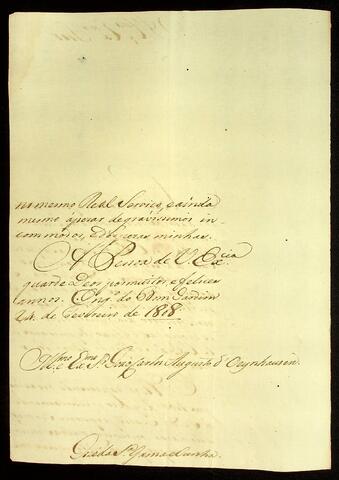 no mesmo Real Serviço, e ainda
mesmo apezar de gravissimos in-
commodos, e minhas.
A Pessoa de V. Excia
guarde Deos por muitos, e felices
annos. do Bom Jardim
24 de Fevereiro de 1818
Illmo e Exmo Sr. João Carlos Augusto d'Oeynhausen.
Gama